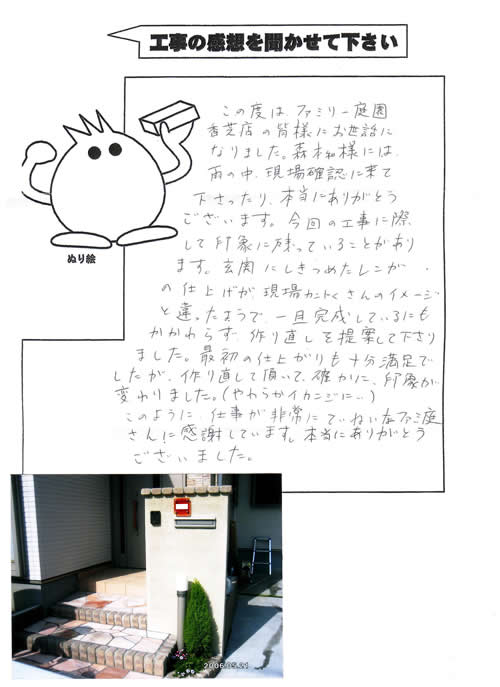 工事の感想を聞かせて下さい
この度は、ファミリー庭園
香芝店の皆様にお世話に
なりました。森本様には、
雨の中、現場確認に来て
下さったり、本当にありがとう
ございます。今回の工事に際
して印象に残っていることがあり
ます。玄関にしきつめたレンガ
の仕上げが現場カントクさんのイメージ
と違ったようで、一旦完成しているにも
かかわらず、作り直しを提案して下さり
ました。最初の仕上がりも十分満足で
したが、作り直して頂いて、確かに、印象が
変わりました。(やわらかイカンジに…)
このように、仕事が非常にていねいなファミ庭
さんに感謝しています。本当にありがとう
ございました。
ぬり絵
2006.05.21